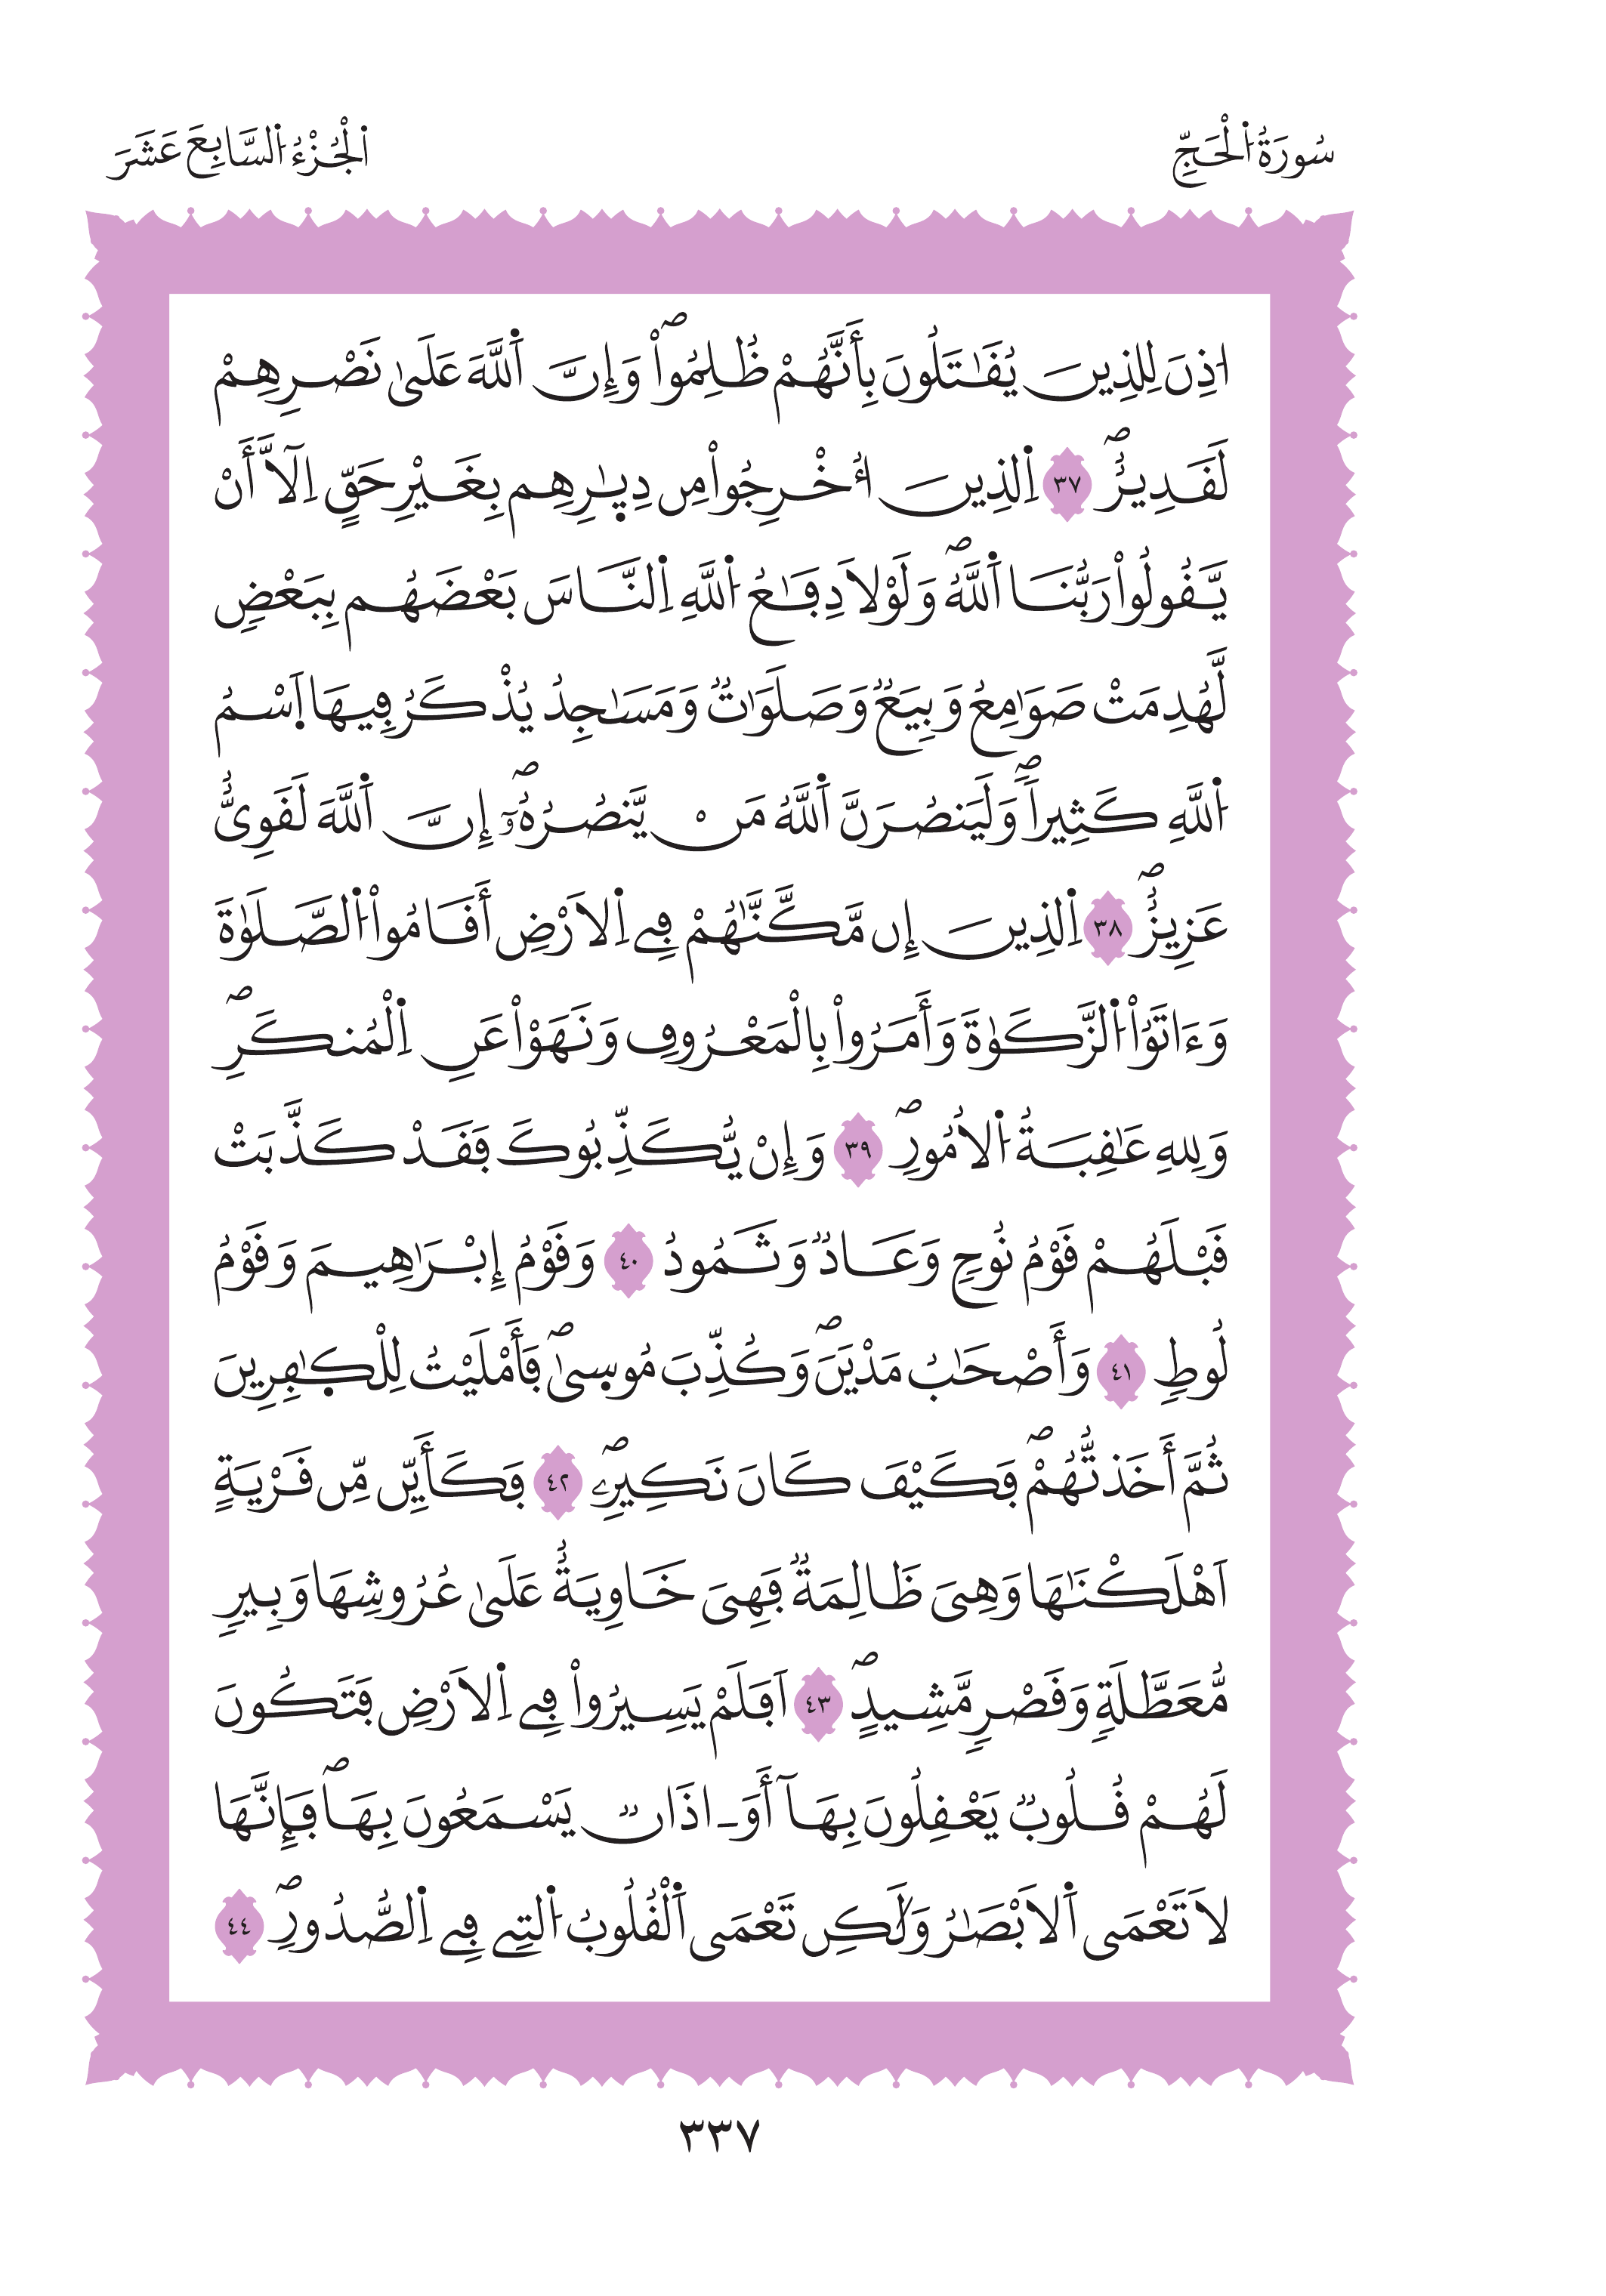 سُورَةُ اُ۬لْحَجِّ
اَ۬لْجُزْءُ اُ۬لسَّابِعَ عَشَرَ
ا۟ذِنَ لِلذِينَ يُقَٰتَلُونَ بِأَنَّهُمْ ظُلِمُواْۖ وَإِنَّ اَ۬للَّهَ عَلَىٰ نَصْرِهِمْ
لَقَدِيرٌۖ ٣٧ اِ۬لذِينَ أُخْرِجُواْ مِن دِيٰ۪رِهِم بِغَيْرِ حَقٍّ اِلَّآ أَنْ
يَّقُولُواْ رَبُّنَا اَ۬للَّهُۖ وَلَوْلَا دِفَٰعُ اُ۬للَّهِ اِ۬لنَّاسَ بَعْضَهُم بِبَعْضٖ
لَّهُدِمَتْ صَوَٰمِعُ وَبِيَعٞ وَصَلَوَٰتٞ وَمَسَٰجِدُ يُذْكَرُ فِيهَا اَ۪سْمُ
اُ۬للَّهِ كَثِيراٗۖ وَلَيَنصُرَنَّ اَ۬للَّهُ مَنْ يَّنصُرُهُۥٓۖ إِنَّ اَ۬للَّهَ لَقَوِيٌّ
عَزِيزٌۖ ٣٨ اِ۬لذِينَ إِن مَّكَّنَّٰهُمْ فِے اِ۬لَارْضِ أَقَامُواْ اُ۬لصَّلَوٰةَ
وَءَاتَوُاْ اُ۬لزَّكَوٰةَ وَأَمَرُواْ بِالْمَعْرُوفِ وَنَهَوْاْ عَنِ اِ۬لْمُنكَرِۖ
وَلِلهِ عَٰقِبَةُ اُ۬لُامُورِۖ ٣٩ وَإِنْ يُّكَذِّبُوكَ فَقَدْ كَذَّبَتْ
قَبْلَهُمْ قَوْمُ نُوحٖ وَعَادٞ وَثَمُودُ ٤٠ وَقَوْمُ إِبْرَٰهِيمَ وَقَوْمُ
لُوطٖ ٤١ وَأَصْحَٰبُ مَدْيَنَۖ وَكُذِّبَ مُوس۪يٰۖ فَأَمْلَيْتُ لِلْكٰ۪فِرِينَ
ثُمَّ أَخَذتُّهُمْۖ فَكَيْفَ كَانَ نَكِيرِۦۖ ٤٢ فَكَأَيِّن مِّن قَرْيَةٍ
اَهْلَكْنَٰهَا وَهِيَ ظَالِمَةٞ فَهِيَ خَاوِيَةٌ عَلَىٰ عُرُوشِهَا وَبِيرٖ
مُّعَطَّلَةٖ وَقَصْرٖ مَّشِيدٍۖ ٤٣ اَفَلَمْ يَسِيرُواْ فِے اِ۬لَارْضِ فَتَكُونَ
لَهُمْ قُلُوبٞ يَعْقِلُونَ بِهَآ أَوَ ـ اذَانٞ يَسْمَعُونَ بِهَاۖ فَإِنَّهَا
لَا تَعْمَى اَ۬لَابْصَٰرُ وَلَٰكِن تَعْمَى اَ۬لْقُلُوبُ اُ۬لتِے فِے اِ۬لصُّدُورِۖ ٤٤
٣٣٧